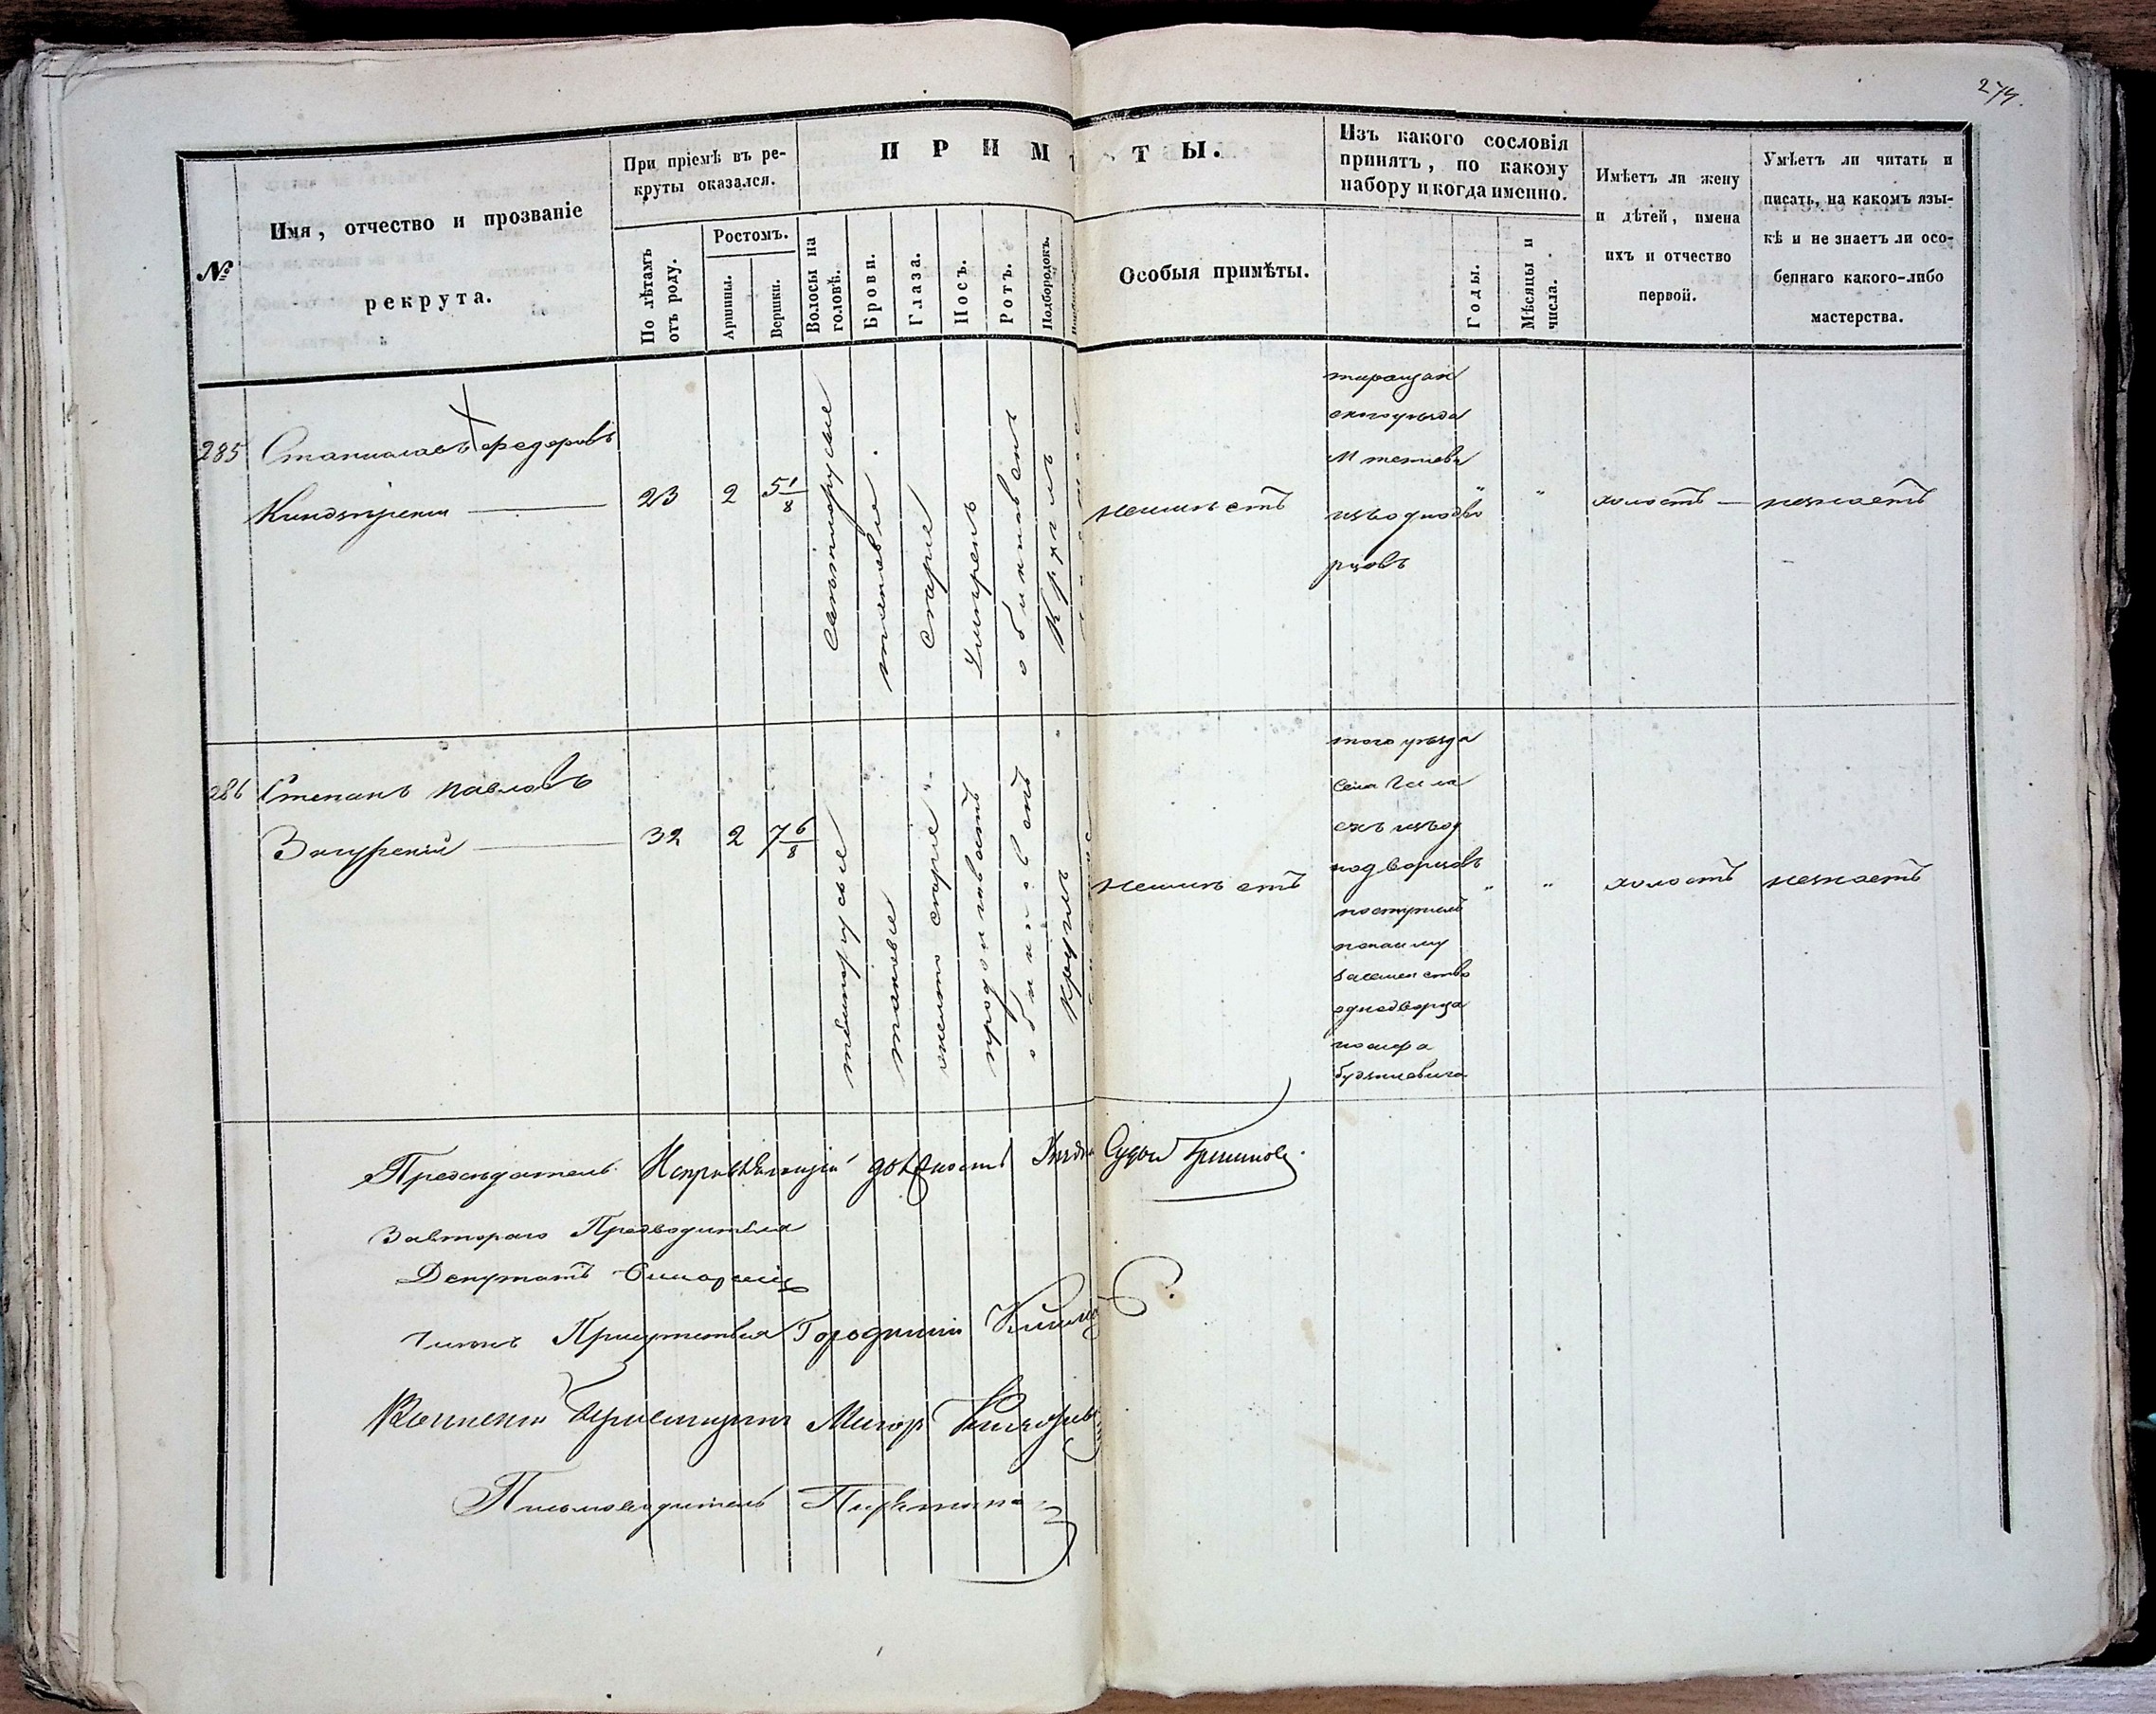 274.
№
Имя, отчество и прозваніе
рекрута.
При пріемѣ въ ре-
круты оказался.
По лѣтамъ
отъ роду.
Ростомъ.
Аршины.
Вершки.
ПРИМѢТЫ.
Волосы на
головѣ.
Брови.
Глаза.
Носъ.
Ротъ.
Подбородокъ.
Особыя примѣты.
Изъ какого сословія
принятъ, по какому
набору и когда именно.
Годы.
Мѣсяцы и
числа.
Имѣетъ ли жену
и дѣтей, имена
ихъ и отчество
первой.
Умѣетъ ли читать и
писать, на какомъ язы-
кѣ и не знаетъ ли осо-
беннаго какого-либо
мастерства.
285
Станиславъ Федоровъ
23
2
5 1/8
светлорусые
такеевые
серые
умеренъ
обикновенъ
Кругл
неимѣетъ
таращан
скогоуезда
изъоднодво
рцовъ
"
"
холостъ
незнаетъ
286
Степанъ Павловъ
Загурскій
32
2
7 6/8
темнорусые
таковые
светло серые
продолговатъ
обикновенъ
кругл
неимѣетъ
того уезда
села
изъод
нодворцовъ
поступилъ
понайму
заеменство
однодворца
"
"
холостъ
незнаетъ
Председатель Исправляющій должность Судьи
Заевтораго Предводителя
Депутатъ
Членъ Присутствія Городничій
Военный Пріемщикъ Маіор
Письмоводитель